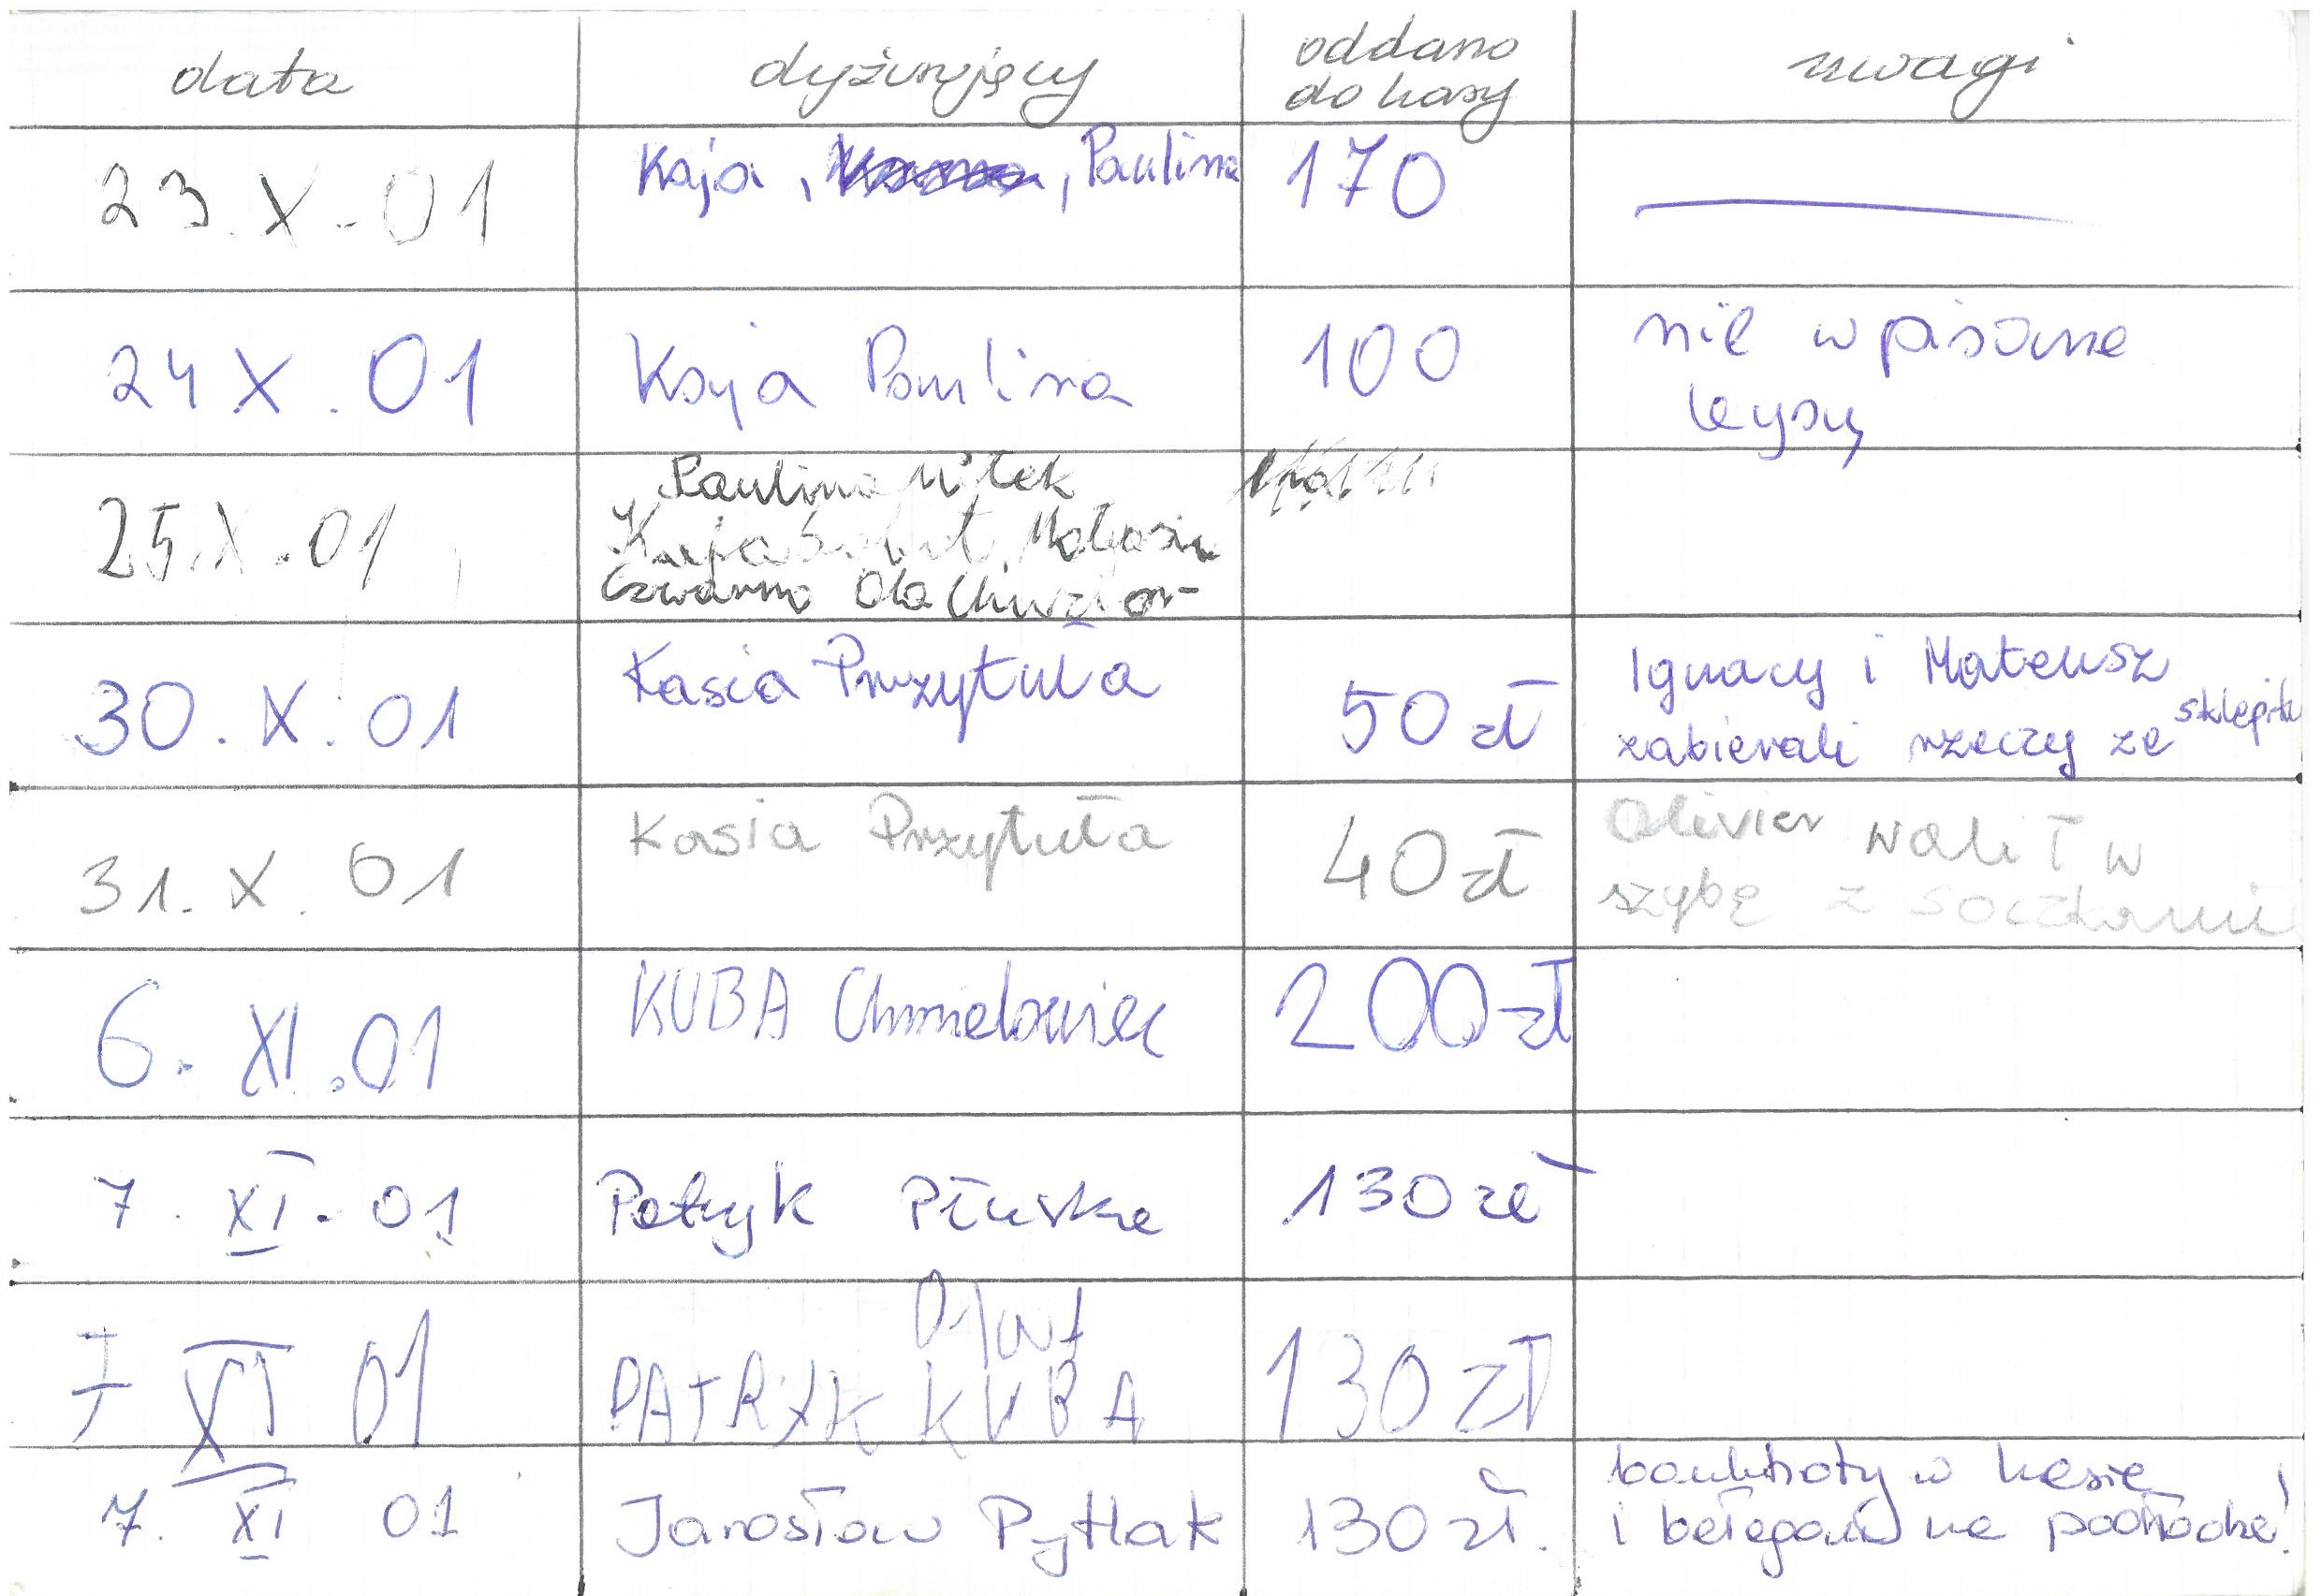 data dyżurujący oddano do kasy uwagi
23.X.01 Kaja, , Paulina 170
24 X. 01 Kaja Paulina 100 nie wpisane
25.X.01 Paulina Miłek
Kaja
Czwarno Ola
30.X.01 Kasia Przytuła 50 zł Ignacy i Mateusz
zabierali rzeczy ze sklepiku
31.X.01 Kasia Przytuła 40 zł Olivier walił w
szybę z soczkami
6.XI.01 KUBA Chmielowiec 200 zł
7.XI.01 Patryk Płuska 130 zł
7 XI 01 PATRYK KUBA 130 ZŁ
7. XI 01 Jarosław Pytlak 130 zł. banknoty w kasie
i bałagan na podłodze!